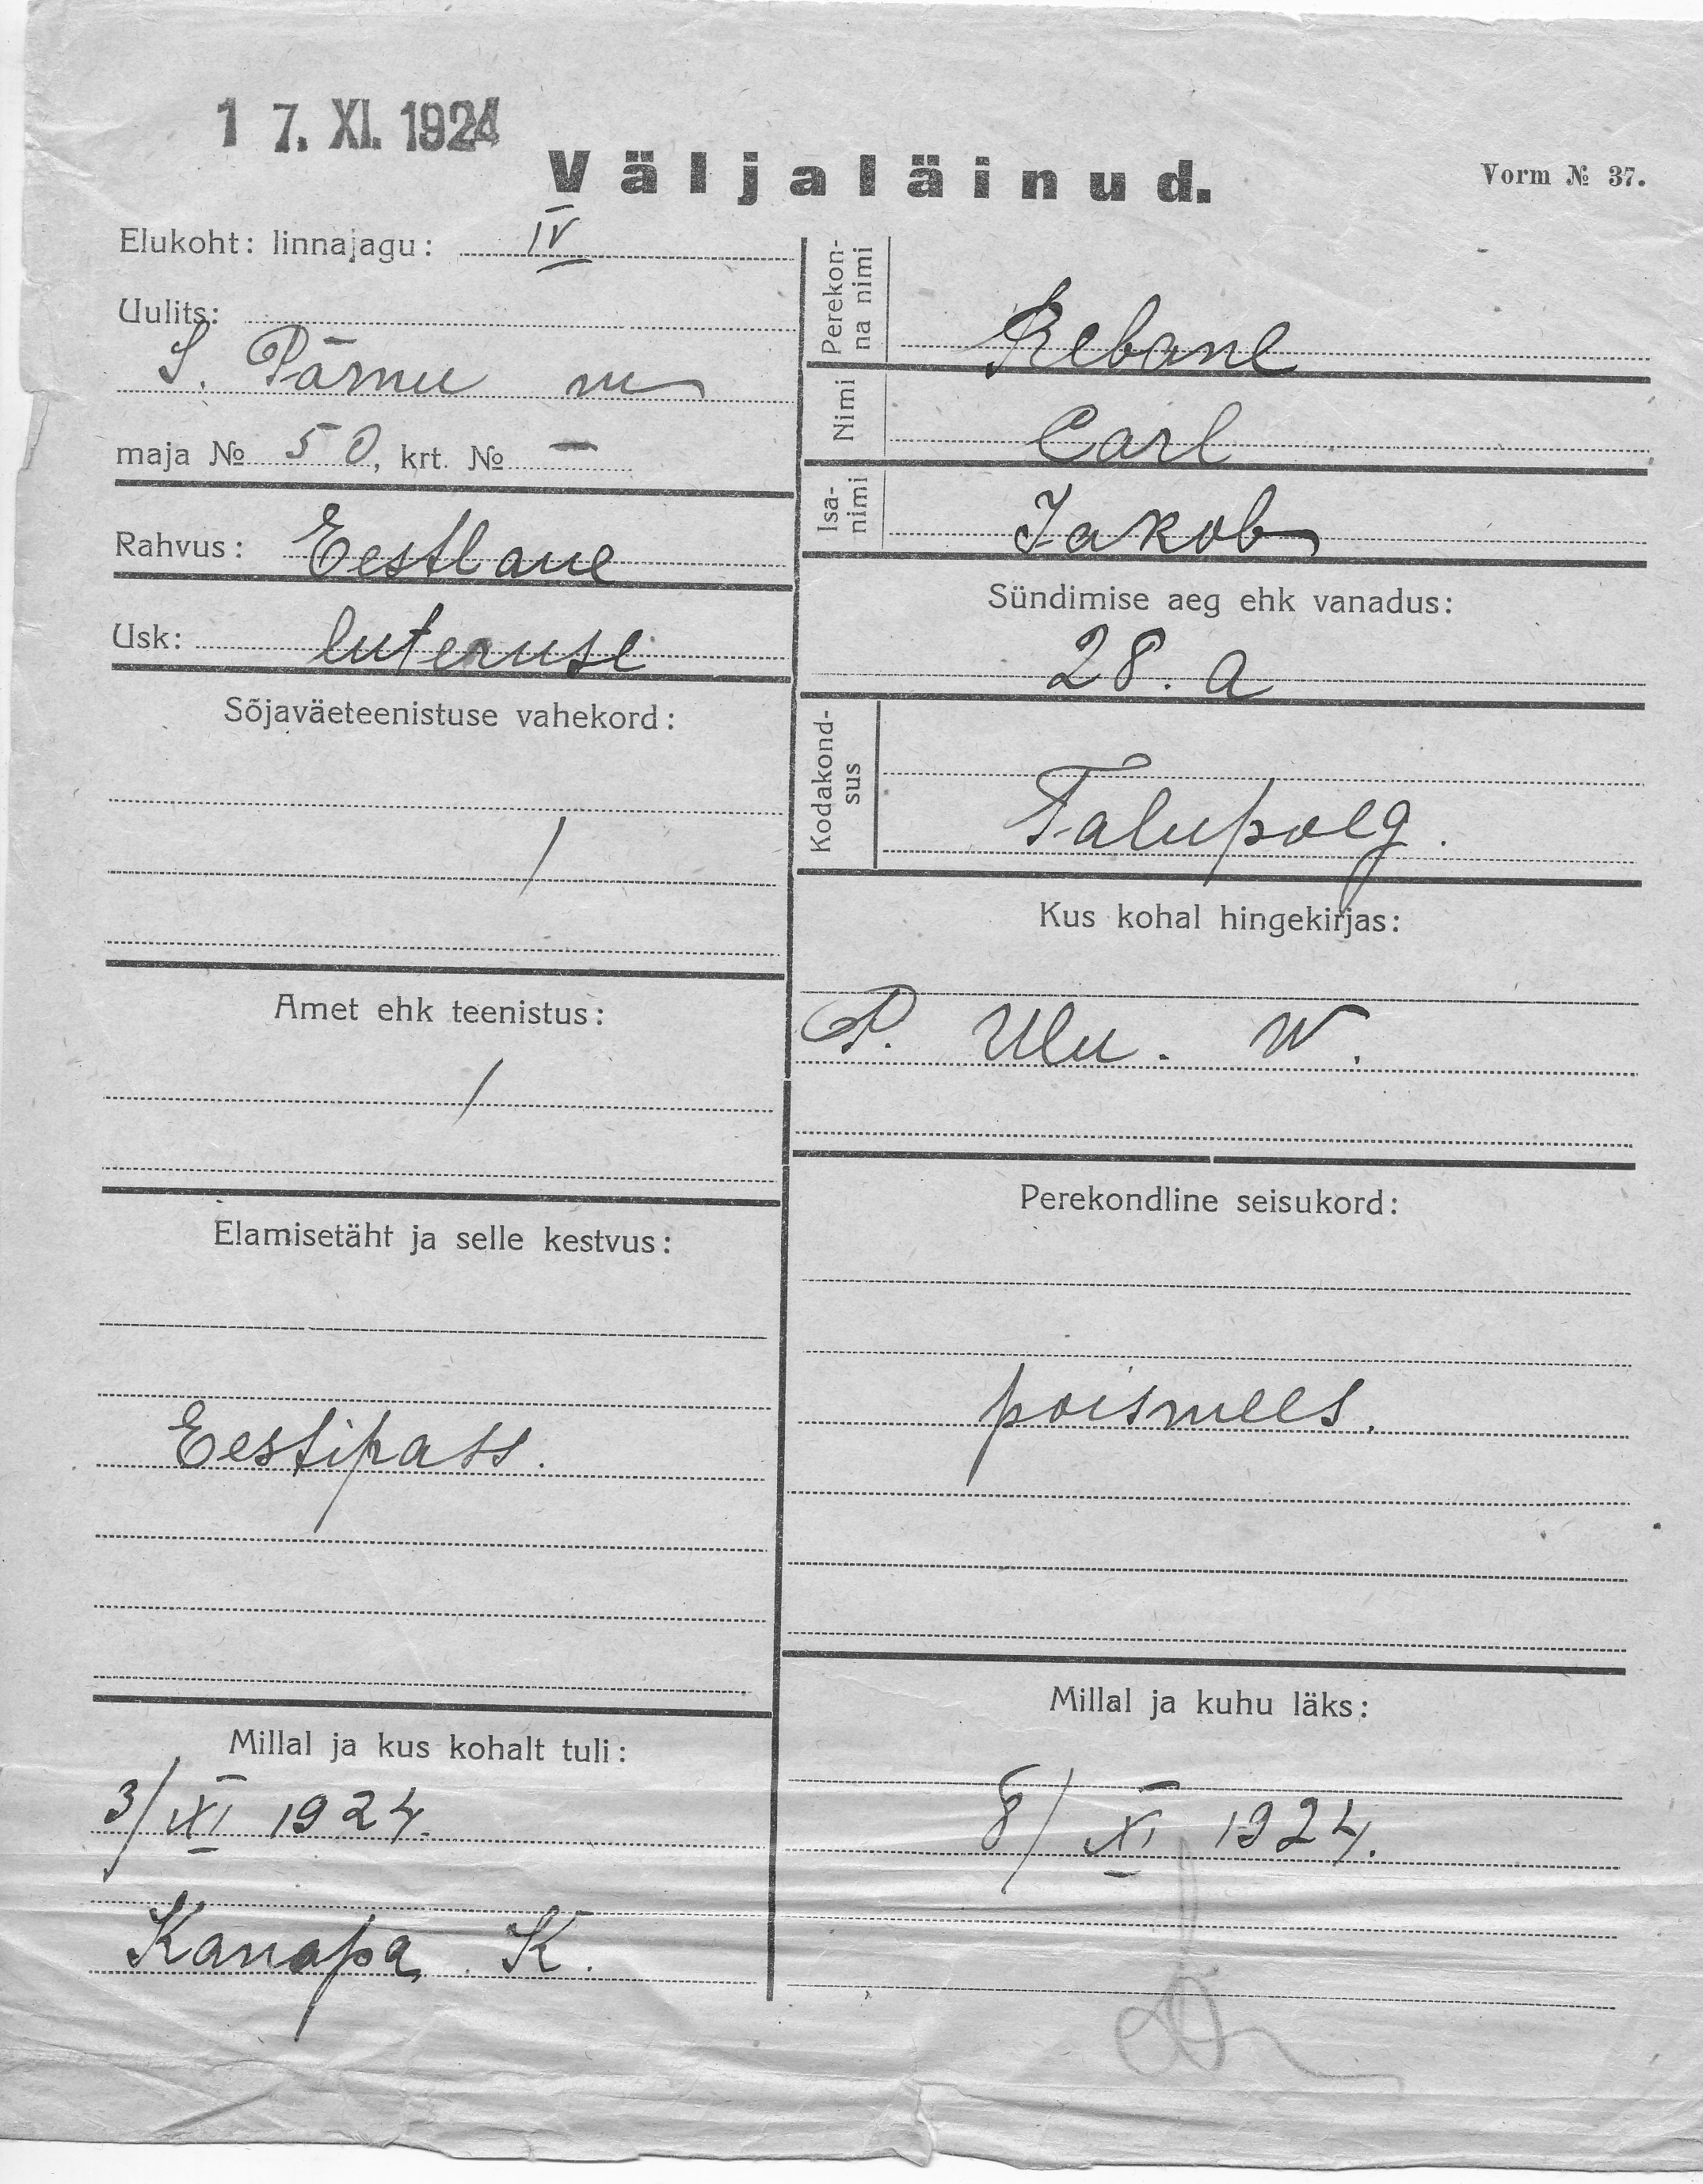 17. XI. 1924
Väljaläinud.
Vorm № 37.
Elukoht: linnajagu: IV
Uulits:
S. Pärnu m
maja № 50, krt. № —
Rahvus: Eestlane
Usk: luteruse
Sõjaväeteenistuse vahekord:
/
Amet ehk teenistus:
/
Elamisetäht ja selle kestvus:
Eestipass.
Millal ja kus kohalt tuli:
3/XI 1924.
Kanapa K.
Perekon-
na nimi
Rebane
Nimi
Carl
Isa-
nimi
Jakob
Sündimise aeg ehk vanadus:
28. a
Kodakond-
sus
Talupoeg.
Kus kohal hingekirjas:
P. Ulu. W.
Perekondline seisukord:
poismees.
Millal ja kuhu läks:
8/XI 1924.